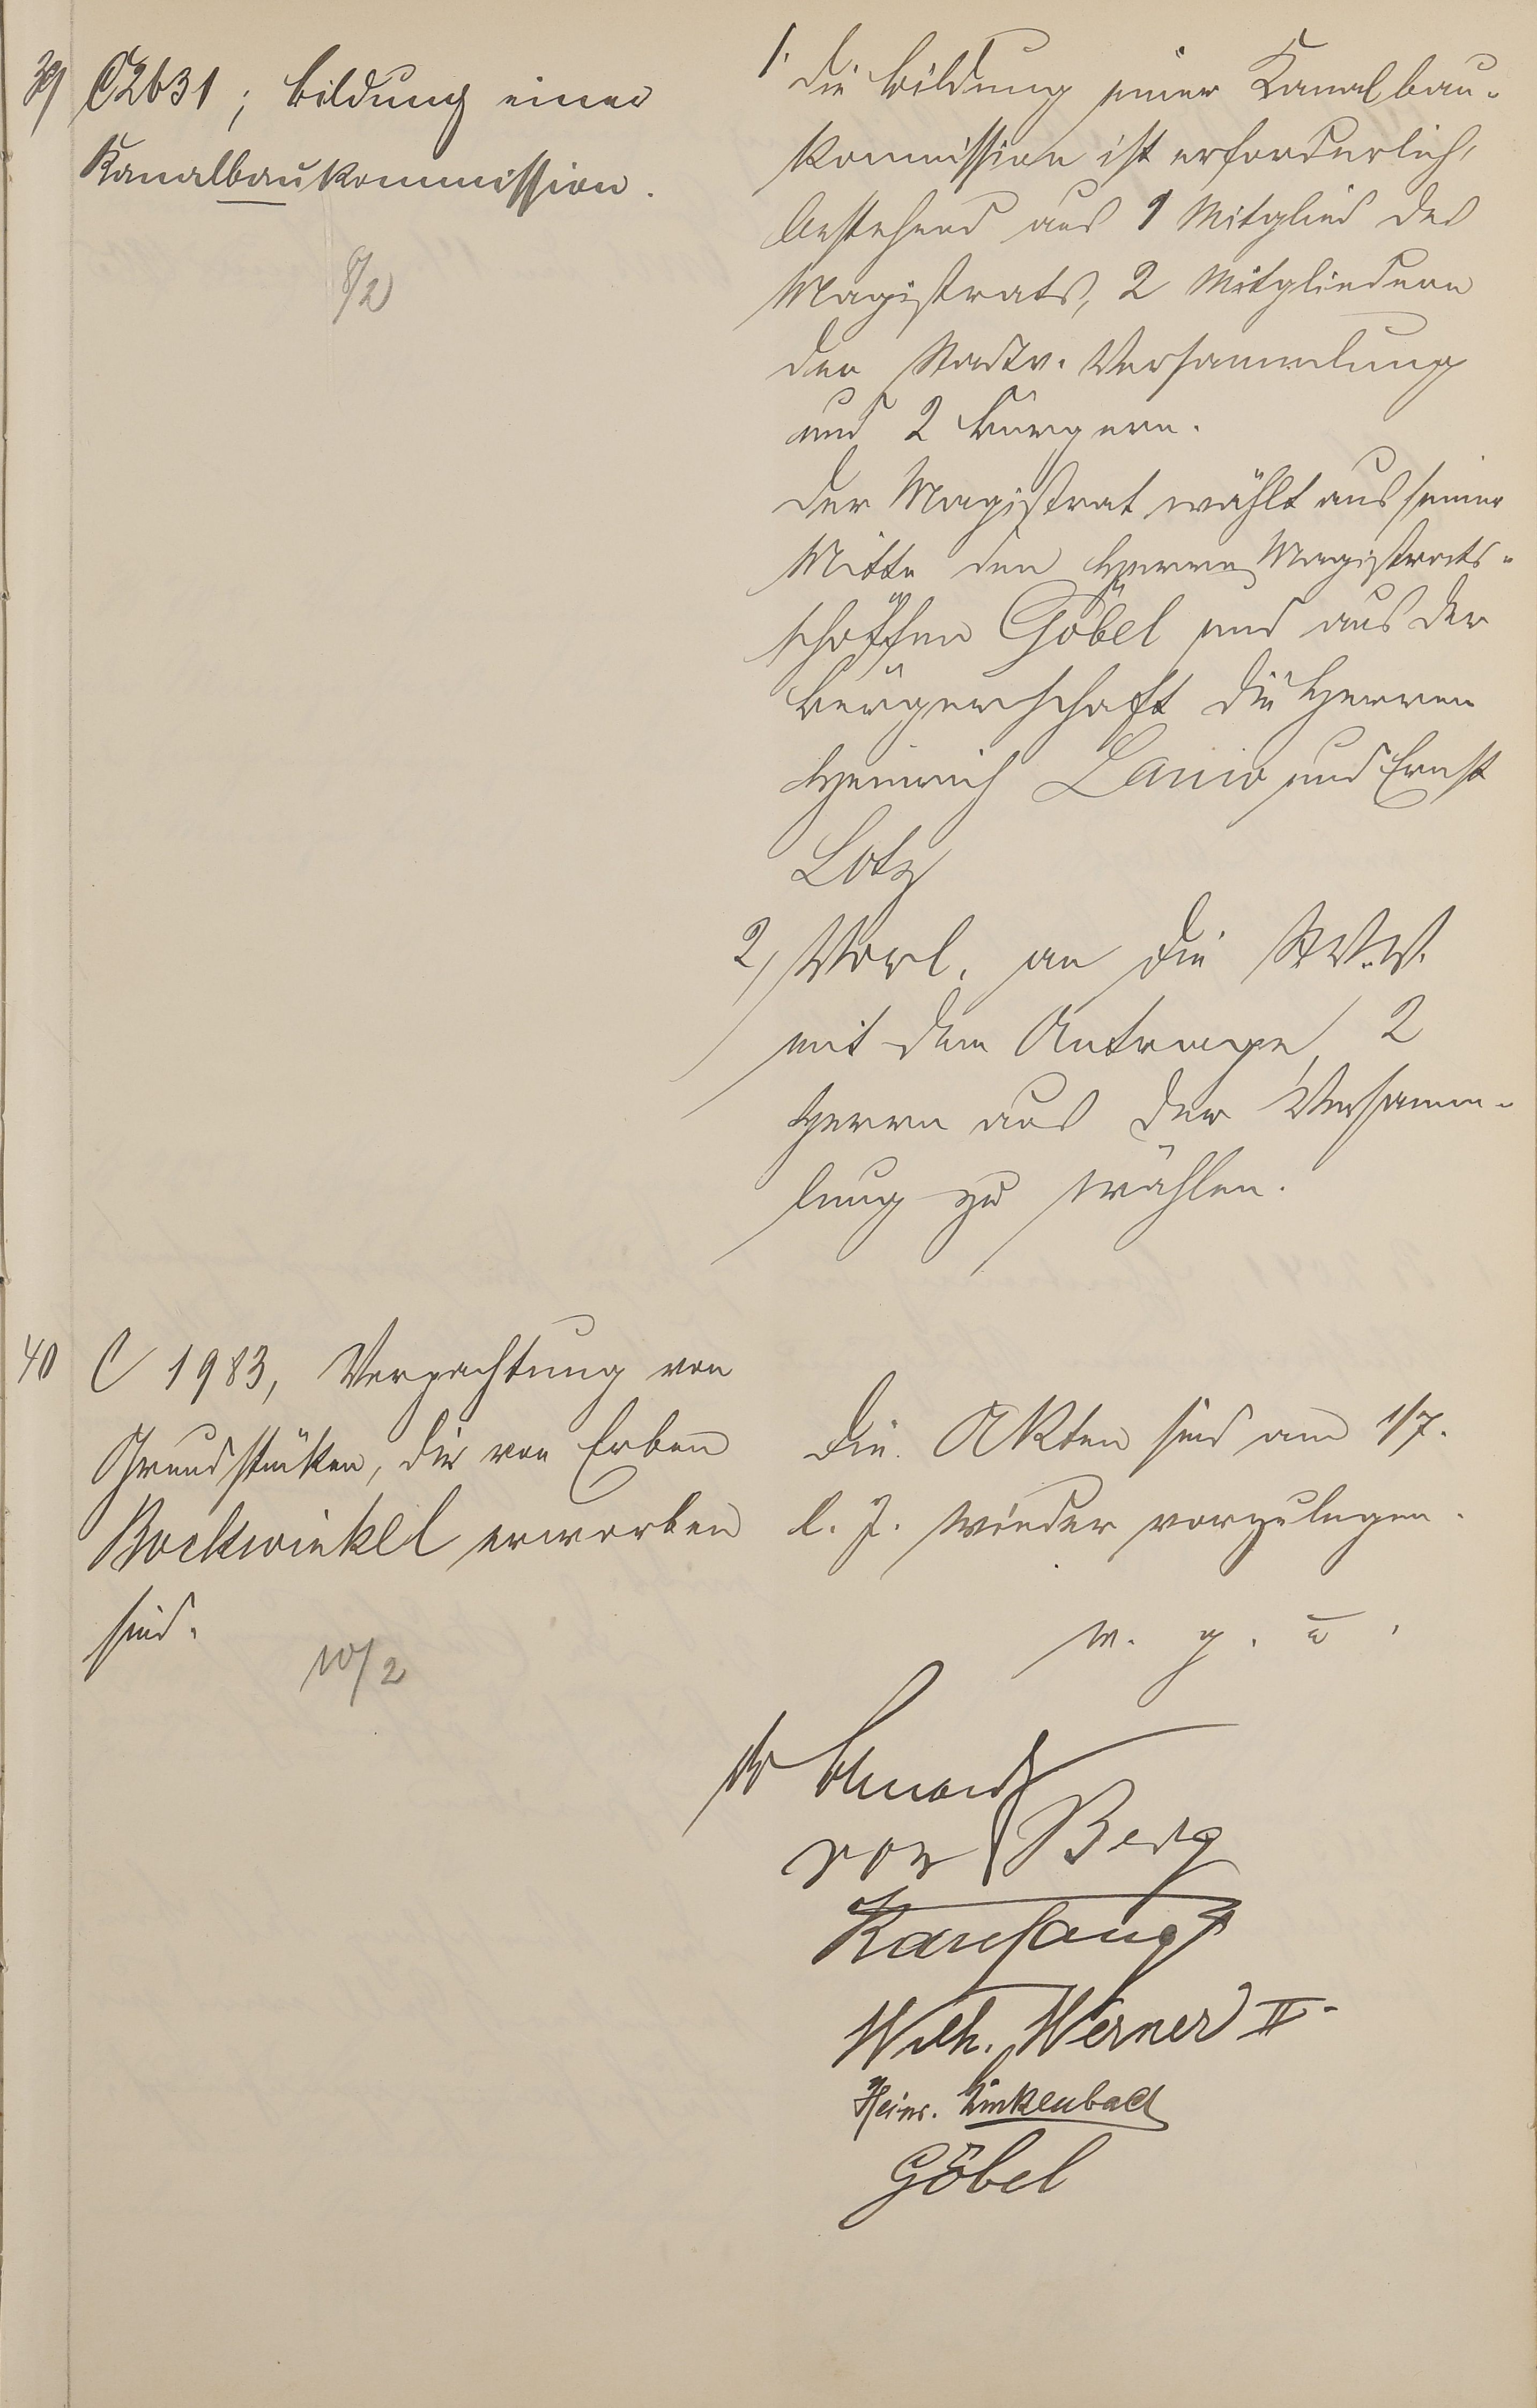 39
C 2631; Bildung einer
Kanalbaukommission.
8/2
1. Die Bildung einer Kanalbau-
kommission ist erforderlich,
bestehend aus 1 Mitglied des
Magistrats, 2 Mitgliedern
der Stadtv. Versammlung
und 2 Bürgern.
Der Magistrat wählt aus seiner
Mitte den Herrn Magistrats-
schöffen Göbel und aus der
Bürgerschaft die Herren
Heinrich Lanio und Ernst
Lotz
2, Vorl. an die St.V.V.
mit dem Antrage, 2
Herrn aus der Versamm-
lung zu wählen.
40
C 1983, Verpachtung von
Grundstücken, die von Erben
Bockwinkel erworben
sind.
10/2
Die Akten sind am 1/7.
l. J. wieder vorzulegen.
v. g. u.
von Berg
Wilh. Werner II.
Heinr. Linkenbach
Göbel